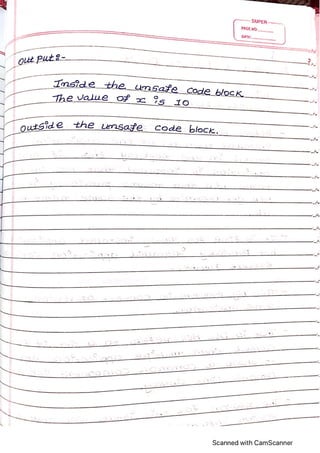 SUPER
PAGE NO.
DATE:
Output:-
Inside the unsafe code block
The value of x is 10
Outside the unsafe code block.
Scanned with CamScanner